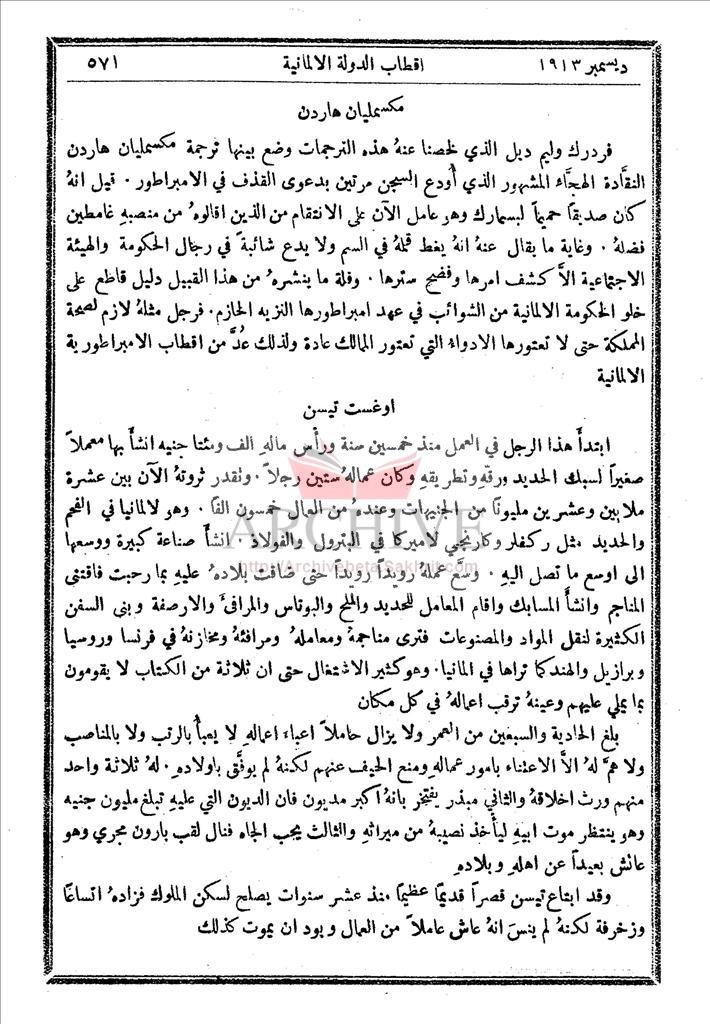 ديسمبر ١٩١٣ اقطاب الدولة الالمانية ٥٧١
مكسمليان هاردن
فردرك وليم ديل الذي لخصنا عنهُ هذه الترجمات وضع بينها ترجمة مكسمليان هاردن
النقَّادة الهجَّاء المشهور الذي أُودع السجن مرتين بدعوى القذف في الامبراطور . قيل انهُ
كان صديقًا حميمًا لبسمارك وهو عامل الآن على الانتقام من الذين اقالوهُ من منصبهِ غامطين
فضلهُ . وغاية ما يقال عنهُ انهُ يغط قلمهُ في السم ولا يدع شائبةً في رجال الحكومة والهيئة
الاجتماعية الاَّ كشف امرها وفضح سترها . وقلة ما ينشرهُ من هذا القبيل دليل قاطع على
خلو الحكومة الالمانية من الشوائب في عهد امبراطورها النزيه الحازم . فرجل مثلهُ لازم لصحة
المملكة حتى لا تعتورها الادواء التي تعتور الممالك عادة ولذلك عُدَّ من اقطاب الامبراطورية
الالمانية
اوغست تيسن
ابتدأَ هذا الرجل في العمل منذ خمسين سنة ورأْس مالهِ الف ومئتا جنيه انشأَ بها معملاً
صغيراً لسبك الحديد ورقّهِ وتطريقهِ وكان عمالهُ ستين رجلاً . وتقدر ثروتهُ الآن بين عشرة
ملايين وعشرين مليونًا من الجنيهات وعندهُ من العمال خمسون الفًا . وهو لالمانيا في الفحم
والحديد مثل ركفلر وكارنجي لاميركا في البترول والفولاذ . انشأَ صناعة كبيرة ووسعها
الى اوسع ما تصل اليهِ . وسع عملهُ رويداً رويداً حتى ضاقت بلادهُ عليهِ بما رحبت فاقتنى
المناجم وانشأَ المسابك واقام المعامل للحديد والملح والبوتاس والمرافئَ والارصفة وبنى السفن
الكثيرة لنقل المواد والمصنوعات فترى مناجمهُ ومعاملهُ ومرافئهُ ومخازنهُ في فرنسا وروسيا
وبرازيل والهند كما تراها في المانيا . وهو كثير الاشتغال حتى ان ثلاثة من الكتاب لا يقومون
بما يملي عليهم وعينهُ ترقب اعمالهُ في كل مكان
بلغ الحادية والسبعين من العمر ولا يزال حاملاً اعباءَ اعمالهِ لا يعبأُ بالرتب ولا بالمناصب
ولا همَّ لهُ الاَّ الاعتناء بامور عمالهِ ومنع الحيف عنهم لكنهُ لم يوفَّق باولادهِ . لهُ ثلاثة واحد
منهم ورث اخلاقهُ والثاني مبذر يفتخر بانهُ اكبر مديون فان الديون التي عليهِ تبلغ مليون جنيه
وهو ينتظر موت ابيهِ ليأخذ نصيبهُ من ميراثهِ والثالث يحب الجاه فنال لقب بارون مجري وهو
عائش بعيداً عن اهلهِ وبلادهِ
وقد ابتاع تيسن قصراً قديمًا عظيمًا منذ عشر سنوات يصلح لسكن الملوك فزادهُ اتساعًا
وزخرفة لكنهُ لم ينسَ انهُ عاش عاملاً من العمال ويود ان يموت كذلك
ARCHIVE
http://Archivebeta.Sakhrit.com